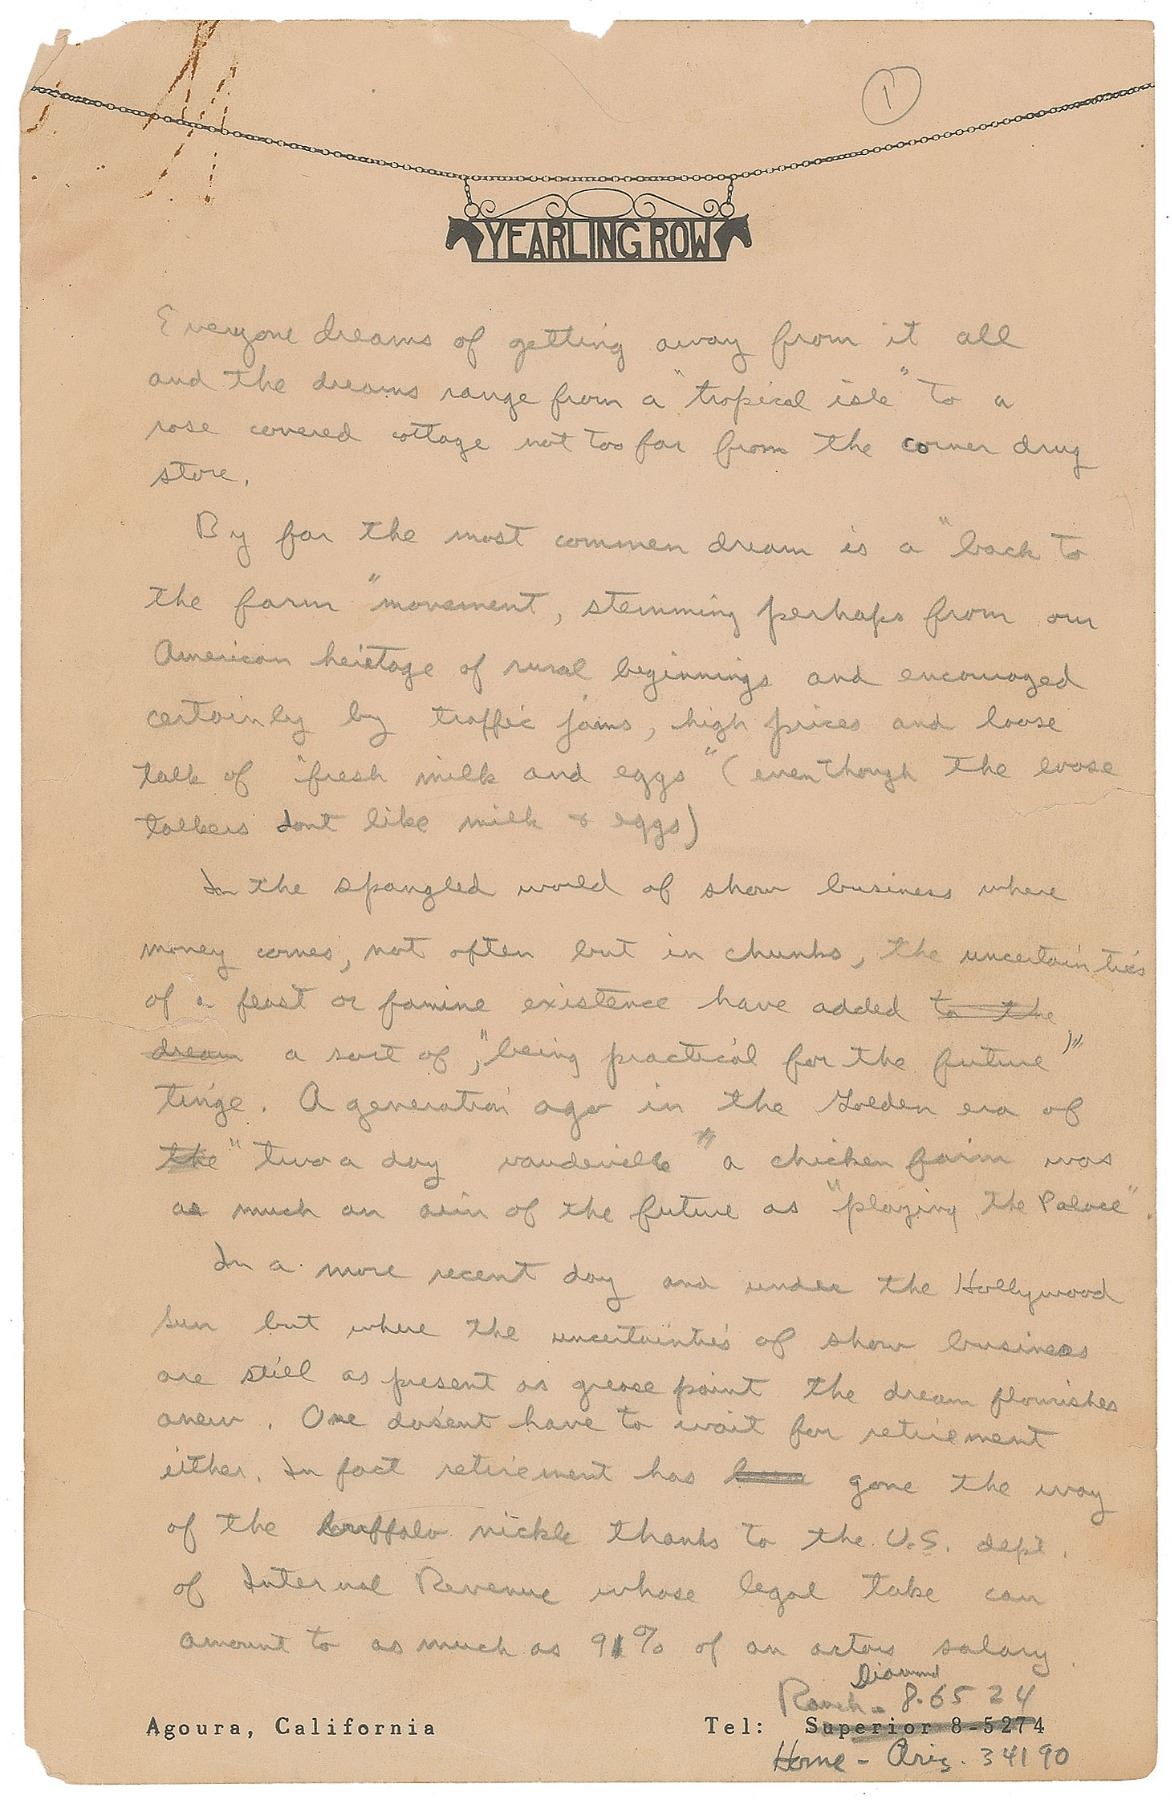 1
YEARLING ROW
Everyone dreams of getting away from it all
and the dreams range from a "tropical isle" to a
rose covered cottage not too far from the corner drug
store.
By far the most common dream is a "back to
the farm" movement, stemming perhaps from our
American heritage of rural beginnings and encouraged
certainly by traffic jams, high prices and loose
talk of "fresh milk and eggs" (even though the loose
talkers dont like milk & eggs)
In the spangled world of show business where
money comes, not often but in chunks, the uncertainties
of a feast or famine existence have added to the
dream a sort of, "being practical for the future"
tinge. A generation ago in the Golden era of
the "two a day vaudeville" a chicken farm was
as much an aim of the future as "playing the Palace".
In a more recent day and under the Hollywood
sun but where the uncertainties of show business
are still as present as grease paint the dream flourishes
anew. One dosent have to wait for retirement
either. In fact retirement has been gone the way
of the buffalo nickle thanks to the U.S. dept.
of Internal Revenue whose legal take can
amount to as much as 91% of an actors salary.
Diamond
Ranch - 8-6524
Agoura, California Tel: Superior 8-5274
Home - Ariz. 34190